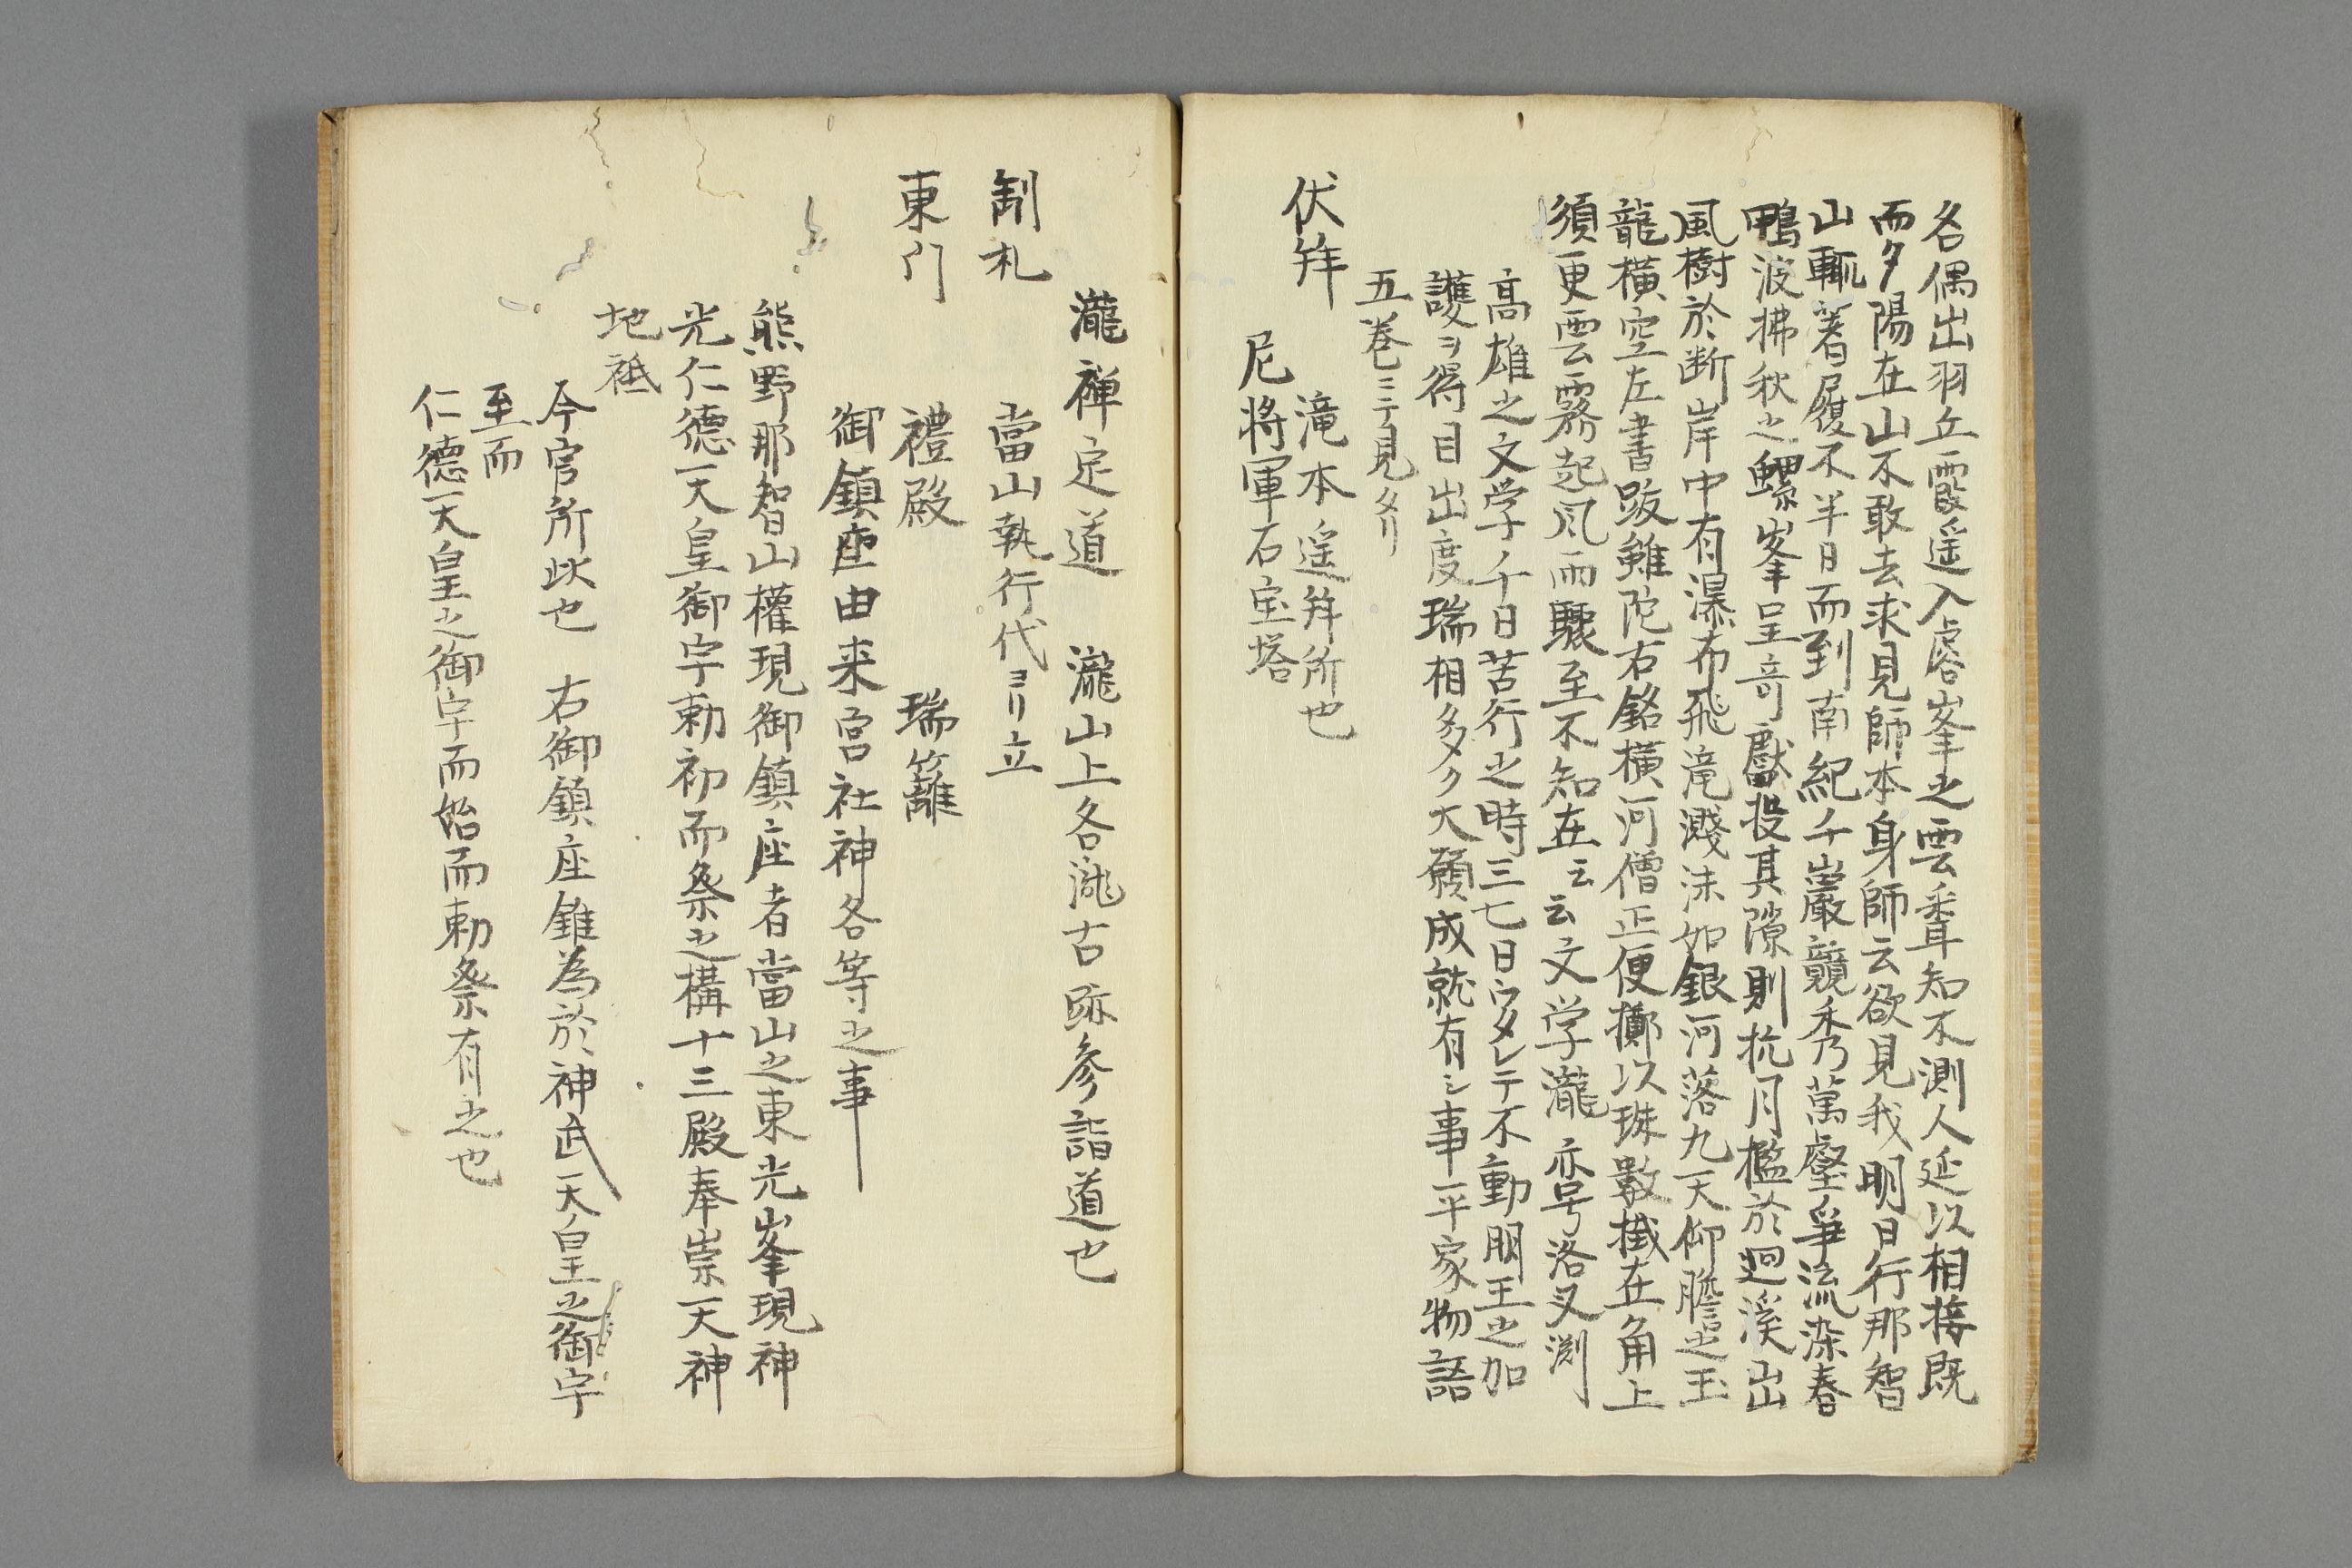 各偶出羽丘霞遥入睿峯之雲耋知不測人延以相接既
而夕陽在山不敢去求見師本身師云欲見我明日行那智
山輒著屐不半日而到南紀千巖競秀萬壑爭流染春
鴨波拂秋之螺峯呈竒獻投其隙則抗月檻於廻溪出
風樹於断岸中有瀑布飛滝濺沫如銀河落九天仰瞻之玉
龍橫空左書跋難陀右銘橫河僧正便擲以珠數掛在角上
須更雲霧起风而驟至不知在云云文学瀧亦号洛叉渕
高雄之文学千日苦行之時三七日ウタレテ不動明王之加
護ヲ得目出度瑞相多ク大願成就有シ事平家物語
五巻ニテ見ヘリ
伏拜
滝本遥拜所也
尼将軍石宝塔
瀧禅定道 瀧山上各瀧古跡参詣道也
制札 當山執行代ヨリ立
東门 禮殿 瑞籬
御鎮座由来宮社神各等之事
熊野那智山權現御鎮座者當山之東光峯現神
光仁德天皇御宇勅初而祭之構十三殿奉崇天神
地祇
今官所此也 右御鎮座雖為於神武天皇之御宇
至而
仁德天皇之御宇而始而勅祭有之也